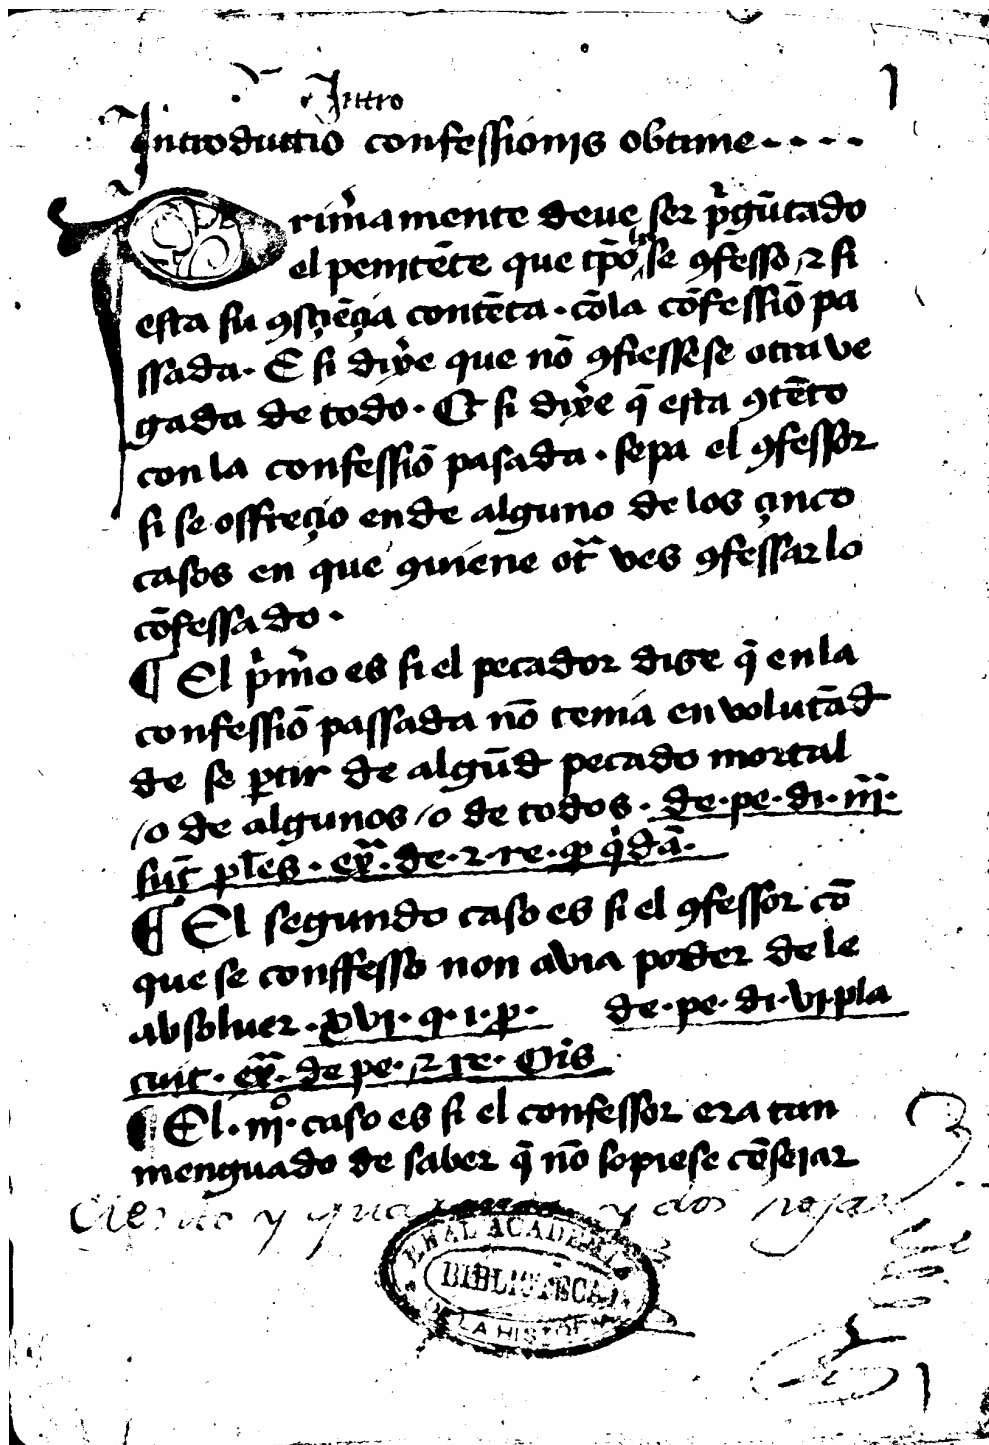 Intro
1
Introductio confessionis obtime
Prim̃amente deue ser p̃gũtado
el penitẽte que tp̃o ha se ꝯfesso ⁊ si
esta su ꝯsçiẽçia contẽta · cõ la cõfessiõ pa
ssada · E si dix̃e que nõ ꝯfiessese otra ve
gada de todo · Et si dix̃e q̃ esta ꝯtẽto
con la confessiõ pasada · sepa el ꝯfessor
si se offreçio ende alguno de los çinco
casos en que ꝯuiene ot̃ᵃ ves ꝯfessar lo
cõfessado ·
¶ El p̃m̃o es si el pecador dise q̃ en la
confessiõ passada nõ tenia en volutãd
de se ꝑtir de algũd pecado mortal
/o de algunos /o de todos · de · pe · di · iii ·
sũt pl̃es · ex̃ᵃ · de · ⁊ · re · ꝙ q̃dã ·
¶ El segundo caso es si el ꝯfessor cõ
que se conffesso non avia poder de le
absoluer · xvi · q · i · p · de · pe · di · vi · pla
cuit · ex̃ᵃ · de pe · ⁊ re · Oĩs
¶ El · iiiº · caso es si el confessor era tan
menguado de saber q̃ nõ sopiese cõseiar
Ciento y quarenta y dos hojas
REAL ACADEMIA
BIBLIOTECA
DE LA HISTORIA
1